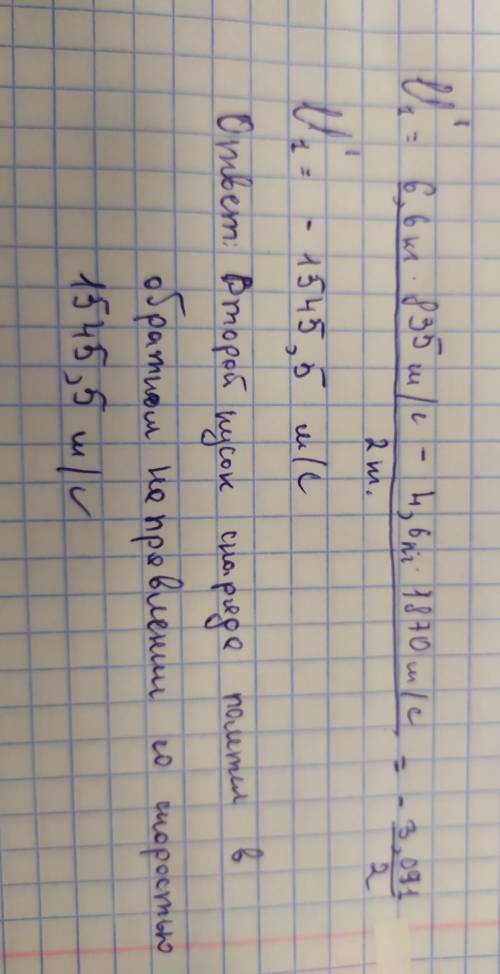 U₁' = 6,6 кг · 835 м/с - 4,6 кг · 1870 м/с / 2 т. = - 3,091 / 2
U₂' = - 1545,5 м/с
Ответ: Второй кусок снаряда полетел в
обратном направлении со скоростью
1545,5 м/с